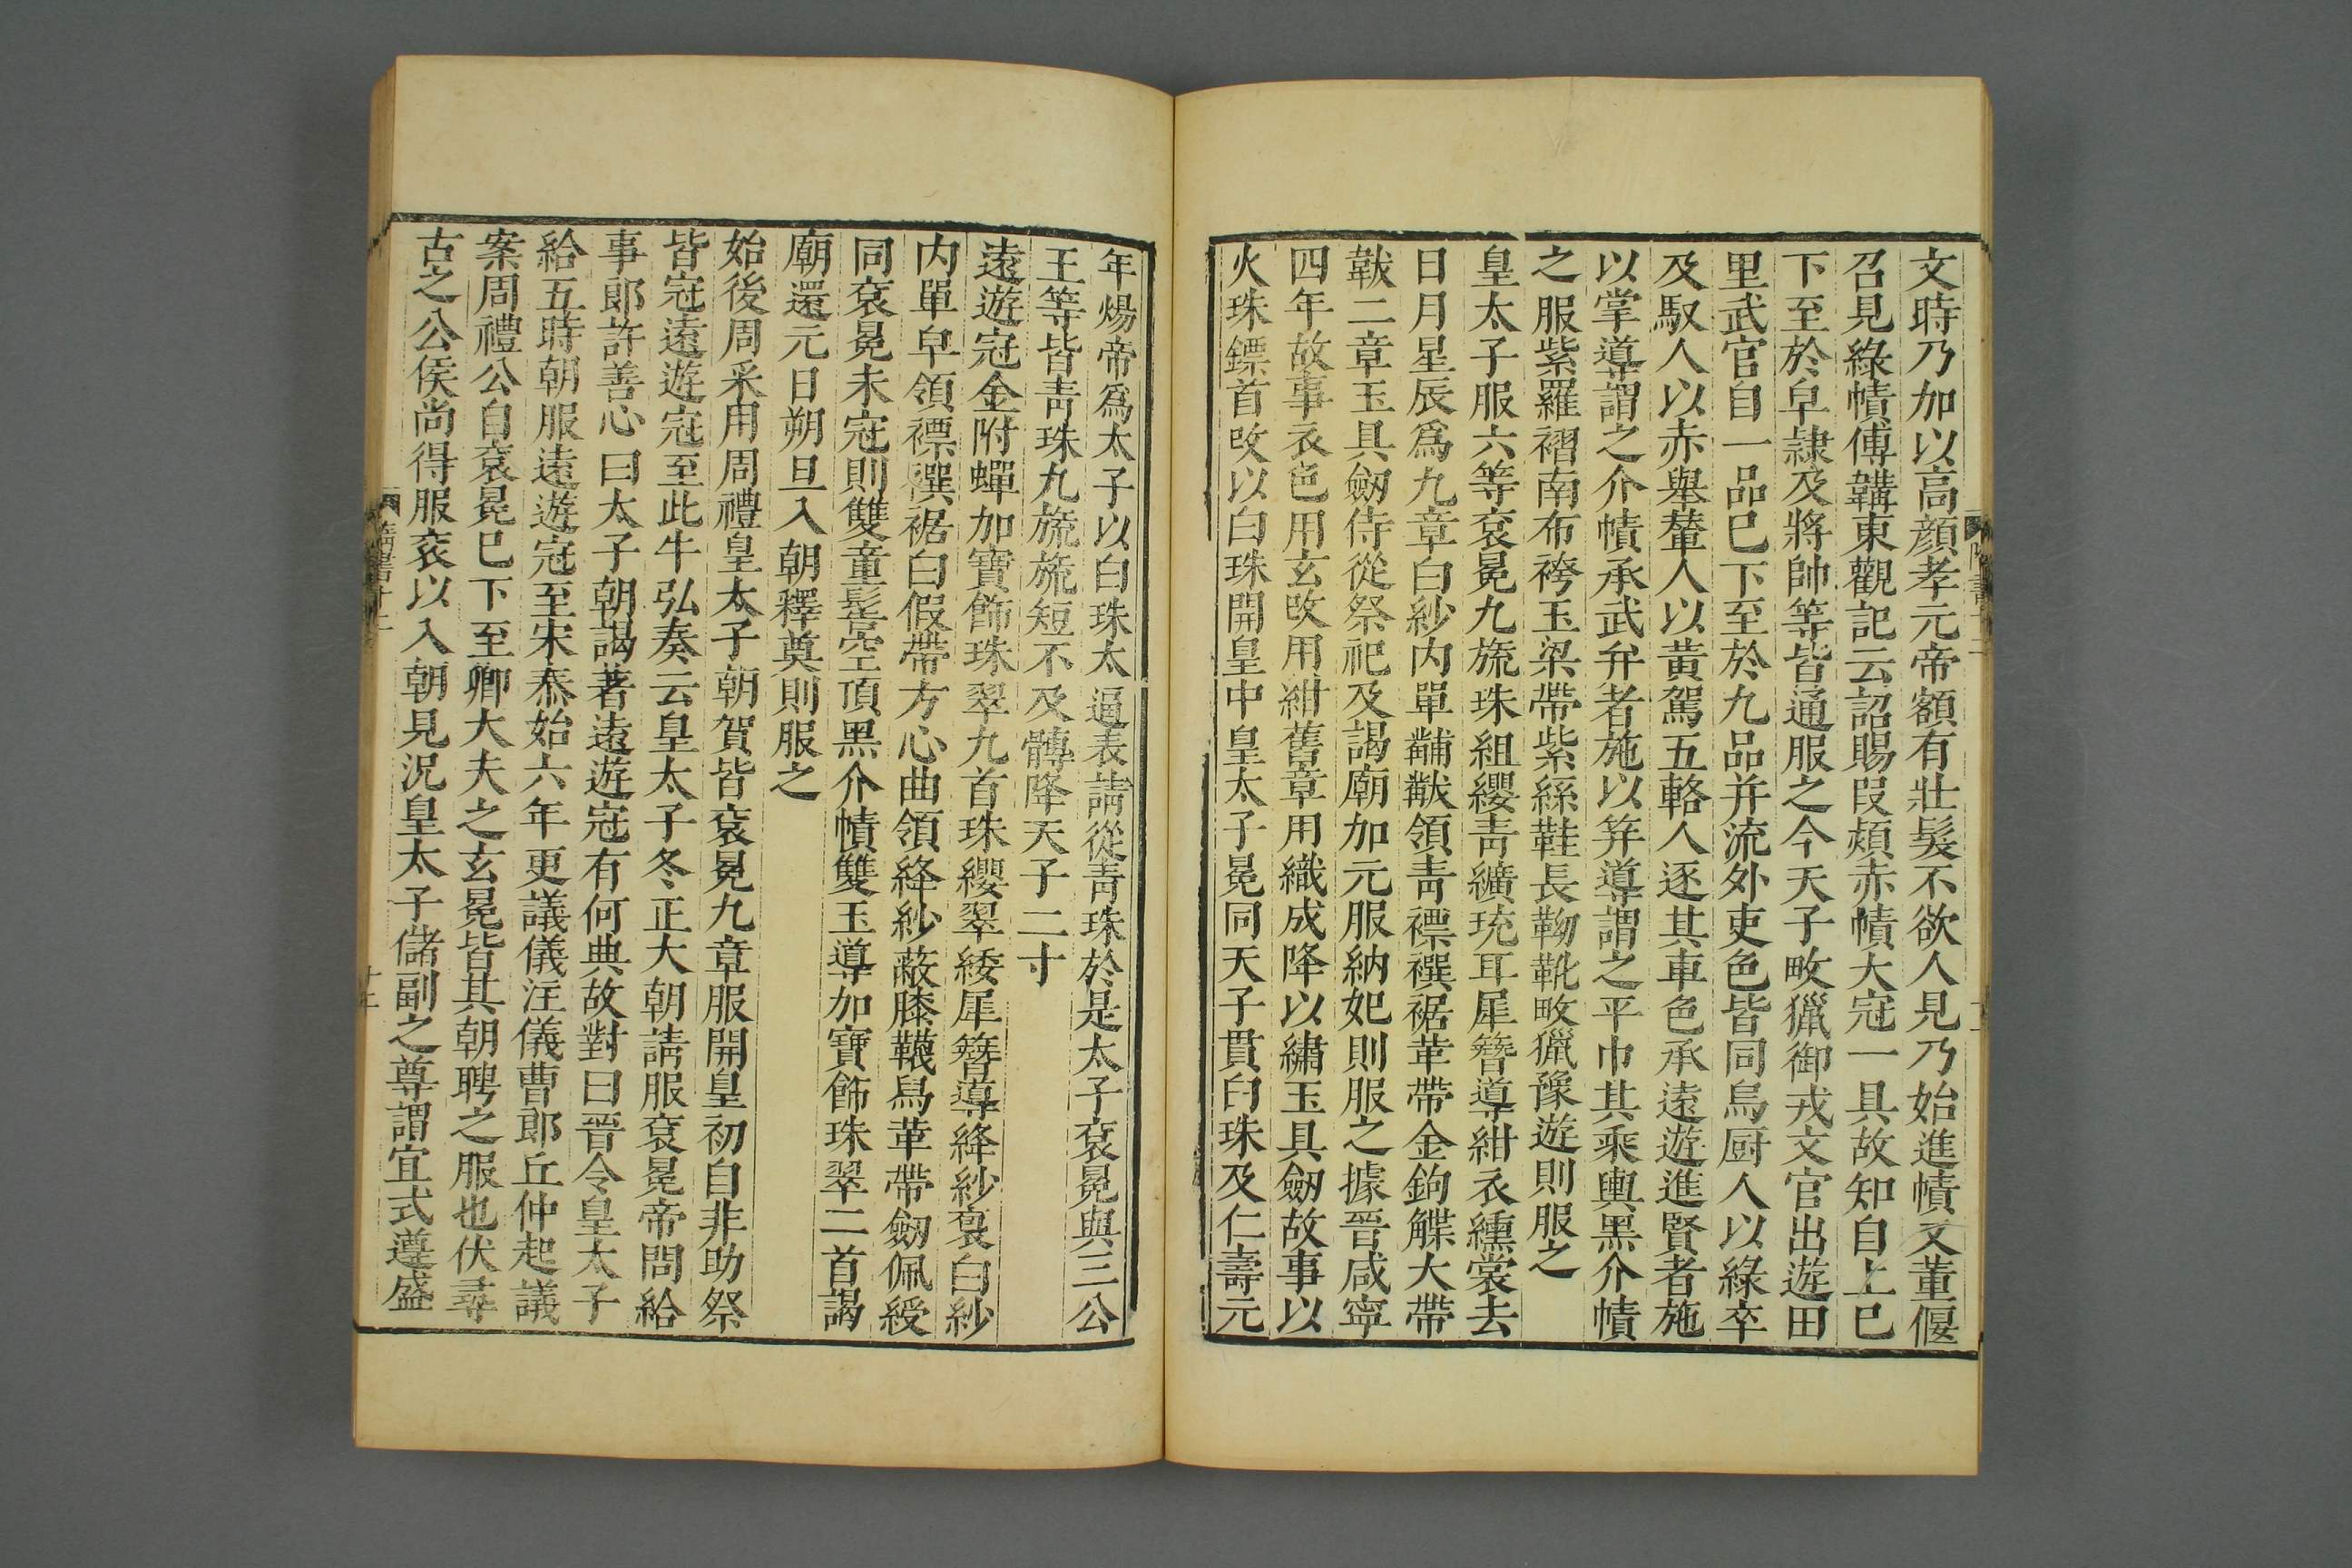 文時乃加以高顏孝元帝額有壯髮不欲人見乃始進幘又董偃
召見綠幘傅韝東觀記云詔賜段熲赤幘大冠一具故知自上巳
下至於皁隷及將帥等皆通服之今天子畋獵御戎文官出遊田
里武官自一品巳下至於九品并流外吏色皆同烏厨人以綠卒
及馭人以赤舉輦人以黄駕五輅人逐其車色承遠遊進賢者施
以掌導謂之介幘承武弁者施以笄導謂之平巾其乘輿黑介幘
之服紫羅褶南布袴玉梁帶紫絲鞋長靿靴畋獵豫遊則服之
皇太子服六等衮冕九旒珠組纓青纊珫耳犀簪導紺衣纁裳去
日月星辰爲九章白紗内單黼黻領青褾襈裾革帶金鉤䚢大帶
韍二章玉具劒侍從祭祀及謁廟加元服納妃則服之據晉咸寧
四年故事衣色用玄改用紺舊章用織成降以繡玉具劒故事以
火珠鏢首改以白珠開皇中皇太子冕同天子貫白珠及仁壽元
年煬帝爲太子以白珠太逼表請從青珠於是太子衮冕與三公
王等皆青珠九旒旒短不及髆降天子二寸
遠遊冠金附蟬加寶飾珠翠九首珠纓翠緌犀簪導絳紗袍白紗
内單皁領褾襈裾白假帶方心曲領絳紗蔽膝韈舄革帶劒佩綬
同衮冕未冠則雙童髻空頂黑介幘雙玉導加寶飾珠翠二首謁
廟還元日朔旦入朝釋奠則服之
始後周采用周禮皇太子朝賀皆衮冕九章服開皇初自非助祭
皆冠遠遊冠至此牛弘奏云皇太子冬正大朝請服衮冕帝問給
事郎許善心曰太子朝謁著遠遊冠有何典故對曰晉令皇太子
給五時朝服遠遊冠至宋泰始六年更議儀注儀曹郎丘仲起議
案周禮公自衮冕巳下至卿大夫之玄冕皆其朝聘之服也伏尋
古之公侯尚得服衮以入朝見況皇太子儲副之尊謂宜式遵盛